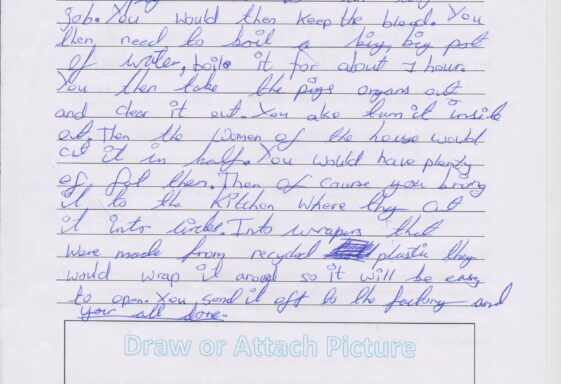 job. You would then keep the blood. You
then need to boil a big, big pot
of water, boile it for about 1 hour.
You then take the pigs organs out
and clear it out. You also turn it inside
out. Then the women of the house would
cut it in half. You would have plenty
of fat then. Then of course you bring
it to the kitchen where they cut
it into circles. Into wrapers that
were made from recycled plastic they
would wrap it around so it will be easy
to open. You send it off to the factory and
your all done.
Draw or Attach Picture